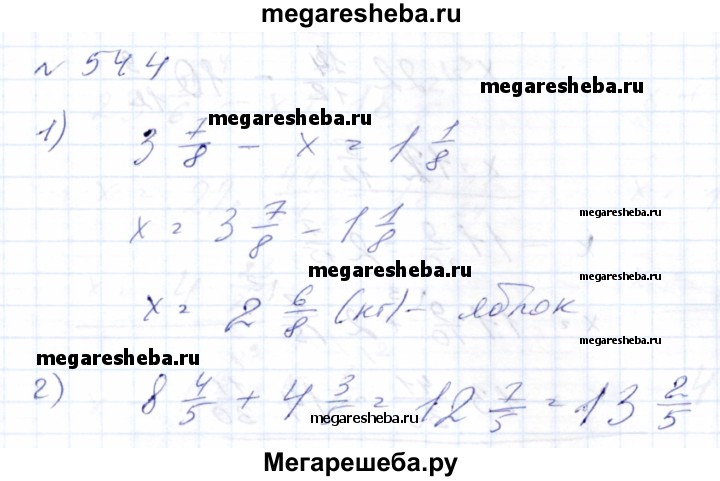 megaresheba.ru
№ 544
megaresheba.ru
1) 3 7/8 - x = 1 1/8
megaresheba.ru
megaresheba.ru
x = 3 7/8 - 1 1/8
megaresheba.ru
x = 2 6/8 (кг) - яблок
megaresheba.ru
megaresheba.ru
2) 8 4/5 + 4 3/5 = 12 7/5 = 13 2/5
megaresheba.ru
Мегарешеба.ру